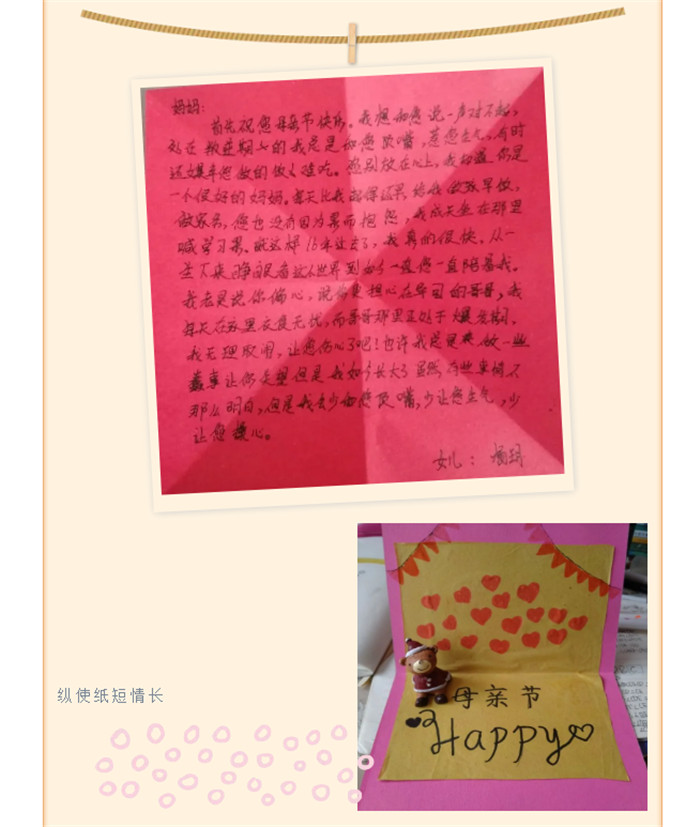 妈妈:
首先祝您母亲节快乐。我想和您说一声对不起,
处在叛逆期的我总是和您顶嘴,惹您生气。有时
还嫌弃您做的饭难吃。您别放在心上,我知道你是
一个很好的妈妈。每天比我起得还早给我做早饭,
做家务,您也没有因为累而抱怨,我成天坐在那里
喊学习累。就这样16年过去了,我真的很快。从一
生下来睁眼看这个世界到如今一直您一直陪着我。
我老是说你偏心,说你更担心在的哥哥,我
每天在家里衣食无忧,而哥哥那里正处于爆发期,
我无理取闹,让您伤心了吧!也许我总是做一些
蠢事让你失望但是我如今长大了虽然有些事情不
那么明白,但是我会少和您顶嘴,少让您生气,少
让您操心。
女儿:
母亲节
Happy
纵使纸短情长